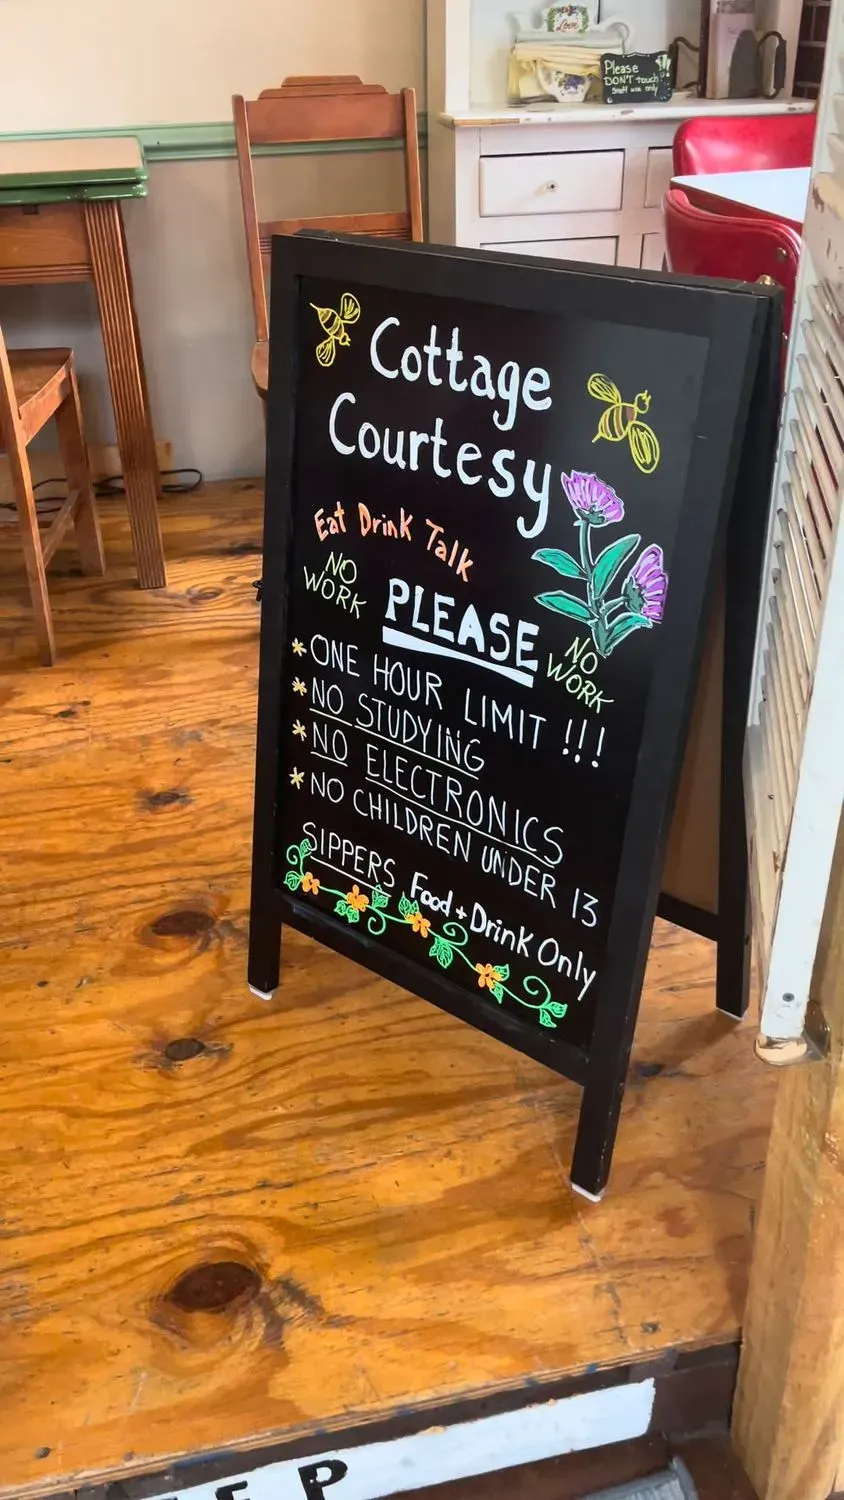 Love
Please
DON'T touch
Staff use only
Cottage
Courtesy
Eat Drink Talk
NO
WORK
PLEASE
NO
WORK
* ONE HOUR LIMIT !!!
* NO STUDYING
* NO ELECTRONICS
* NO CHILDREN UNDER 13
SIPPERS Food + Drink Only
EP